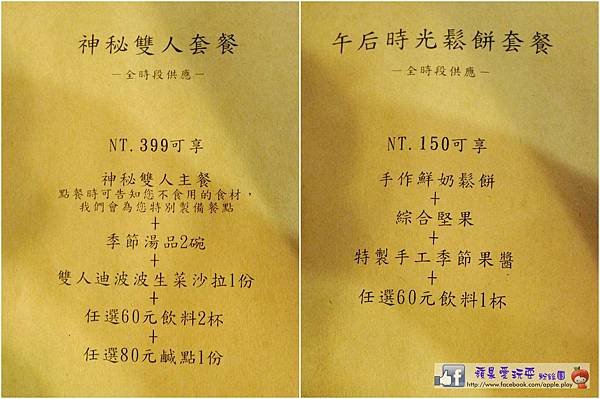 神秘雙人套餐
－全時段供應－
NT.399可享
神秘雙人主餐
點餐時可告知您不食用的食材，
我們會為您特別製備餐點
+
季節湯品2碗
+
雙人迪波波生菜沙拉1份
+
任選60元飲料2杯
+
任選80元鹹點1份
午后時光鬆餅套餐
－全時段供應－
NT.150可享
手作鮮奶鬆餅
+
綜合堅果
+
特製手工季節果醬
+
任選60元飲料1杯
蘋果愛玩耍 粉絲團
http://www.facebook.com/apple.play